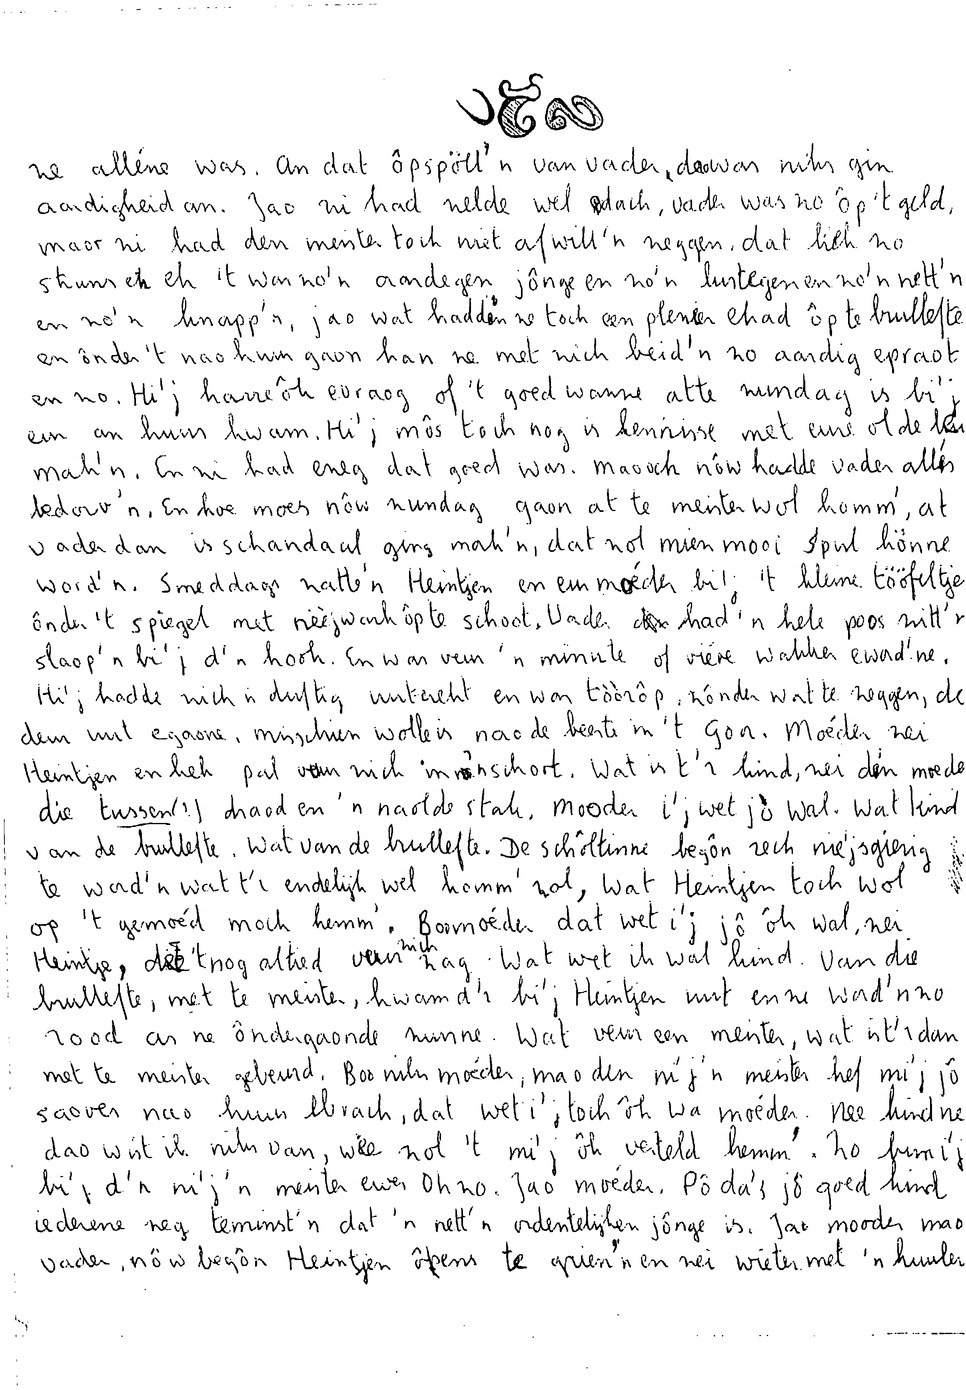 ze alléne was. An dat ôpspöll'n van vader, daowas niks gin
aardigheid an. Jao zi had zelde wel edach, vader was zo ôp 't geld,
maor zi had den meister toch niet afwill'n zeggen, dat liek zo
stuns ek ek 't was zo'n aandegen jônge en zo'n lustegen en zo'n nett'n
en zo'n knapp'n, jao wat hadden ze toch een plezier ehad ôp te brullefte
en ônder 't nao huus gaon han ze met zich beid'n zo aardig epraot
en zo. Hi'j harre ôk evraog of 't goed wanne atte zundag is bi'j
eur an huus kwam. Hi'j môs toch nog is kennisse met eure olde leu
mak'n. En zi had ezeg dat goed was. Maooch nôw hadde vader alles
bedorv'n. En hoe moes nôw zundag gaon at te meister wol komm', at
vader dan is schandaal ging mak'n, dat zol mien mooi spul könne
word'n. Smeddags zatte'n Heintjen en eur moéder bi'j 't kleine tööfeltje
ônder 't spiegel met nèèjwark ôp te schoot. Vader had 'n hele poos zitt'n
slaop'n bi'j d'n hook. En was veur 'n minute of viére wakker eword'ne.
Hi'j hadde zich 'n duftig uuterekt en was töörôp, zônder wat te zeggen, de
deur uut egaone, misschien wolle is nao de beeste in 't Goor. Moéder zei
Heintjen en kek pal veur zich in eur schort. Wat is t'r kind, zei den moeder
die tussen(?) draod en 'n naolde stak. Mooder i'j wet jô wal. Wat kind
van de brullefte. Wat van de brullefte. De schôltinne begôn zech nie'jsgierig
te word'n wat t'r endelijk wel komm' zol, wat Heintjen toch wol
op 't gemoéd moch hemm'. Boomoéder dat wet i'j jô ôk wal, zei
Heintje, die 't nog altied veur zich zag. Wat wet ik wal kind. Van die
brullefte, met te meister, kwam d'r bi'j Heintjen uut en ze word'n zo
rood as ne ôndergaonde zunne. Wat veur een meister, wat is t'r dan
met te meister gebeurd. Boo niks moéder, mao den ni'j'n meister hef mi'j jô
saoves nao huus ebrach, dat wet i'j toch ôk wa moéder. Nee kind ne
dao wist ik niks van, wee zol 't mi'j ôk verteld hemm'. Zo bun i'j
bi'j d'n ni'j'n meister ewes. Oh zo. Jao moéder. Pô da's jô goed kind
iederene zeg teminst'n dat 'n nett'n ordentelijken jônge is. Jao mooder mao
vader, nôw begôn Heintjen ôpens te grien'n en zei wieter met 'n huuler